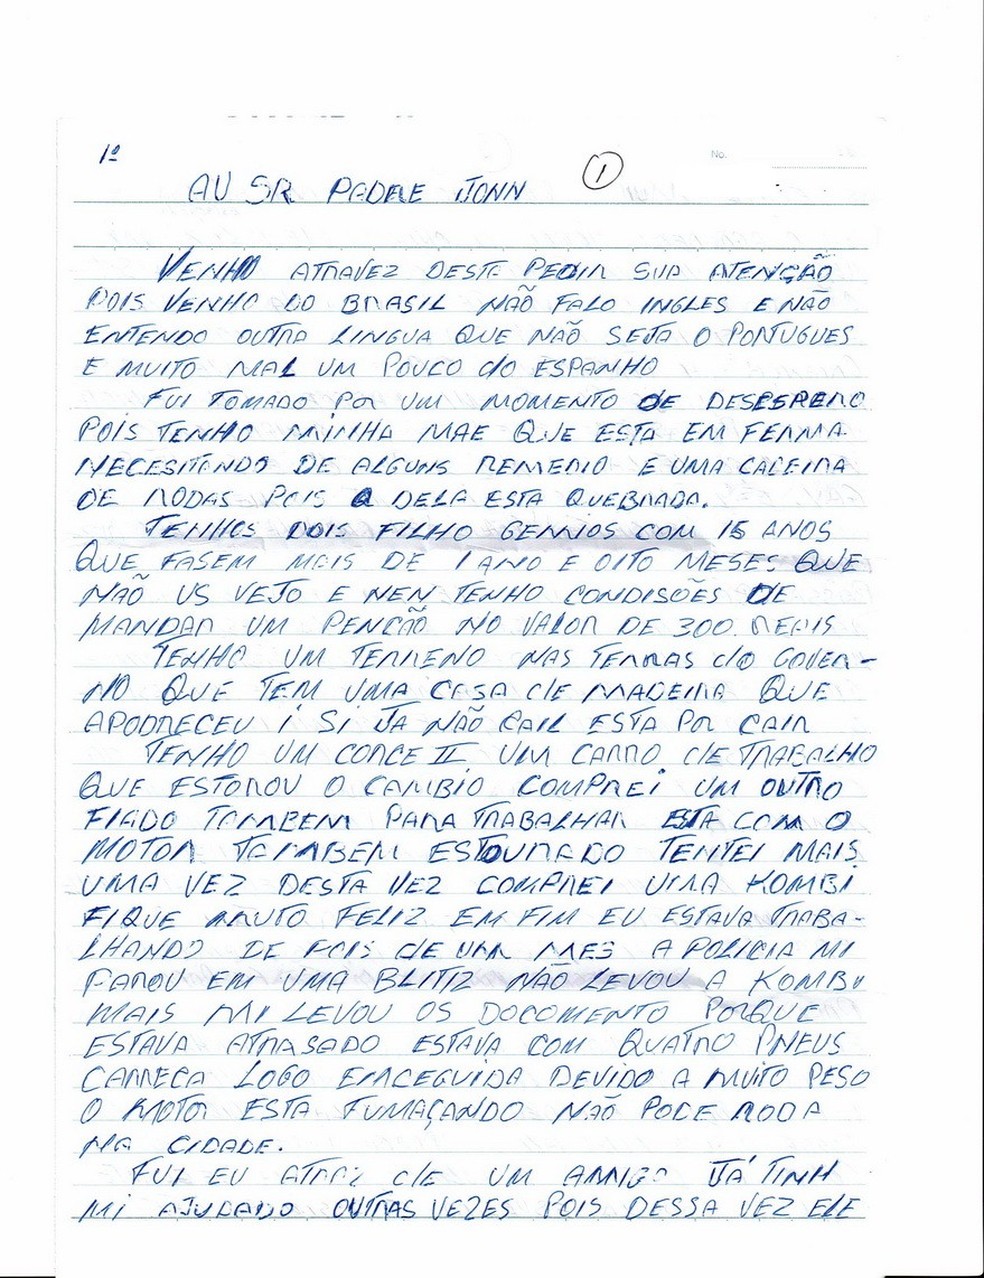 1º
1
No.
AU SR. PADRE JONN
VENHO ATRAVEZ DESTE PEDIR SUA ATENÇÃO
POIS VENHO DO BRASIL NÃO FALO INGLES E NÃO
ENTENDO OUTRA LINGUA QUE NÃO SEJA O PORTUGUES
E MUITO MAL UM POUCO do ESPANHO
FUI TOMADO POR UM MOMENTO DE DESESPERO
POIS TENHO MINHA MAE QUE ESTA EM FERMA
NECESITANDO DE ALGUNS REMEDIO E UMA CADEIRA
DE RODAS POIS A DELA ESTA QUEBRADA.
TENHOS DOIS FILHO GEMIOS COM 15 ANOS
QUE FASEM MAIS DE 1 ANO E OITO MESES QUE
NÃO US VEJO E NEN TENHO CONDISÕES DE
MANDAR UM PENCÃO NO VALOR DE 300. REAIS
TENHO UM TERRENO NAS TERRAS do GOVER-
NO QUE TEM UMA CASA de MADEIRA QUE
APODRECEU i Si JA NÃO CAIL ESTA POR CAIR
TENHO UM CORCE II UM CARRO de TRABALHO
QUE ESTOROU O CAMBIO COMPREI UM OUTRO
FIADO TAMBEM PARA TRABALHAR ESTA COM O
MOTOR TAMBEM ESTOURADO TENTEI MAIS
UMA VEZ DESTA VEZ COMPREI UMA KOMBI
FIQUE MUITO FELIZ EM FIM EU ESTAVA TRABA-
LHANDO DE POIS de UM MES A POLICIA MI
PAROU EM UMA BLITIZ NÃO LEVOU A KOMBI
MAIS MI LEVOU OS DOCOMENTO PORQUE
ESTAVA ATRASADO ESTAVA COM QUATRO PNEUS
CARRECA LOGO EMCEGUIDA DEVIDO A MUITO PESO
O MOTOR ESTA FUMAÇANDO NÃO PODE RODA
NA CIDADE.
FUI EU ATRAZ de UM AMIGO JÁ TINH
MI AJUDADO OUTRAS VEZES POIS DESSA VEZ ELE